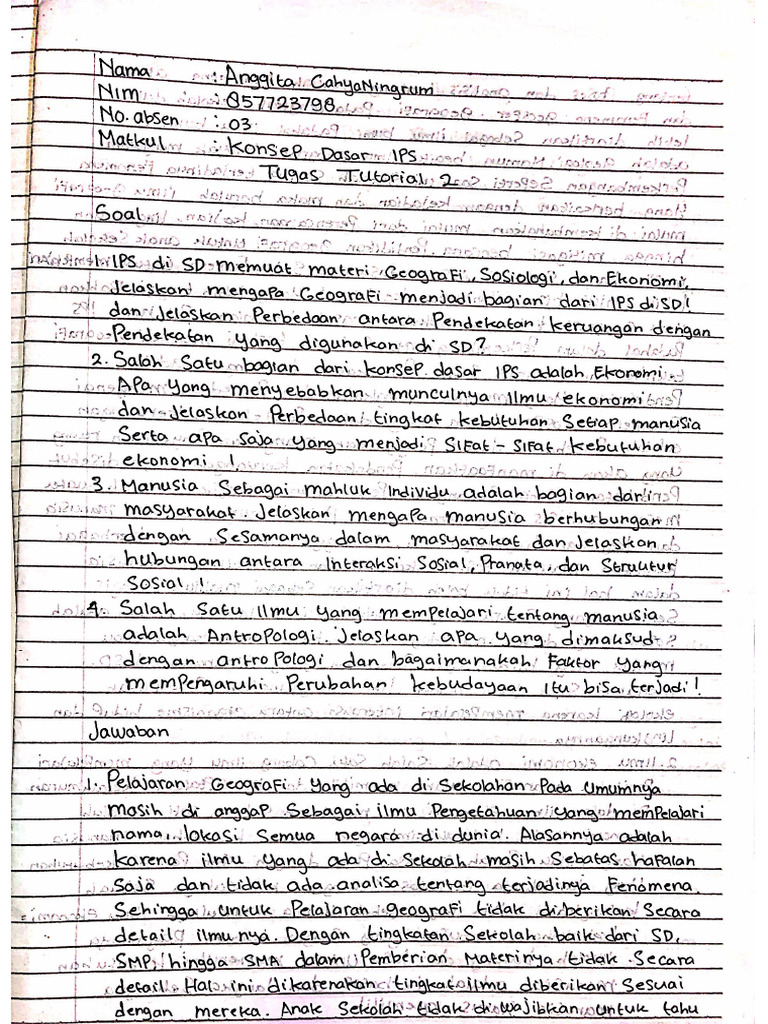 Nama : Anggita CahyaNingrum
Nim : 857723798
No. absen : 03
Matkul : Konsep Dasar IPS
Tugas Tutorial 2
Soal
1. IPS di SD memuat materi Geografi, Sosiologi, dan Ekonomi.
Jelaskan mengapa Geografi menjadi bagian dari IPS di SD!
dan Jelaskan Perbedaan antara Pendekatan keruangan dengan
Pendekatan yang digunakan di SD?
2. Salah Satu bagian dari konsep dasar IPS adalah Ekonomi.
Apa yang menyebabkan munculnya Ilmu ekonomi
dan Jelaskan Perbedaan tingkat kebutuhan Setiap manusia
Serta apa saja yang menjadi Sifat - Sifat kebutuhan
ekonomi. !
3. Manusia Sebagai mahluk Individu adalah bagian dari
masyarakat. Jelaskan mengapa manusia berhubungan
dengan Sesamanya dalam masyarakat dan Jelaskan
hubungan antara Interaksi Sosial, Pranata, dan Struktur
Sosial !
4. Salah Satu Ilmu yang mempelajari tentang manusia
adalah Antropologi. Jelaskan apa yang dimaksud
dengan antropologi dan bagaimanakah Faktor yang
mempengaruhi Perubahan kebudayaan Itu bisa terjadi!
Jawaban
1. Pelajaran Geografi yang ada di Sekolahan Pada Umumnya
masih di anggap Sebagai ilmu Pengetahuan yang mempelajari
nama, lokasi Semua negara di dunia. Alasannya adalah
karena ilmu yang ada di Sekolah masih Sebatas hafalan
Saja dan tidak ada analisa tentang terjadinya Fenomena.
Sehingga untuk Pelajaran geografi tidak diberikan Secara
detail ilmunya. Dengan tingkatan Sekolah baik dari SD,
SMP, hingga SMA dalam Pemberian Materinya tidak Secara
detail. Hal ini dikarenakan tingkat ilmu diberikan Sesuai
dengan mereka. Anak Sekolah tidak di wajibkan untuk tahu